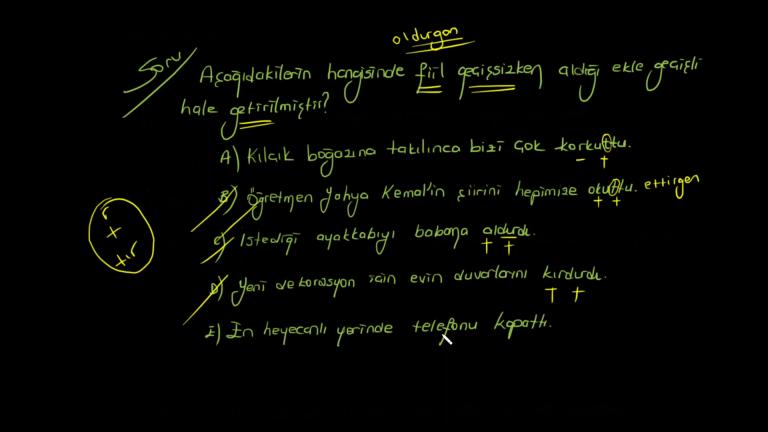 oldurgan
Soru
Aşağıdakilerin hangisinde fiil geçişsizken aldığı ekle geçişli
hale getirilmiştir?
A) Kılçık boğazına takılınca bizi çok korkuttu.
- +
B) Öğretmen Yahya Kemal'in şiirini hepimize okuttu. ettirgen
+ +
C) İstediği ayakkabıyı babana aldurdu.
+ +
D) Yeni dekorasyon için evin duvarlarını kırdurdu.
+ +
E) En heyecanlı yerinde telefonu kapattı.
r
+
tır